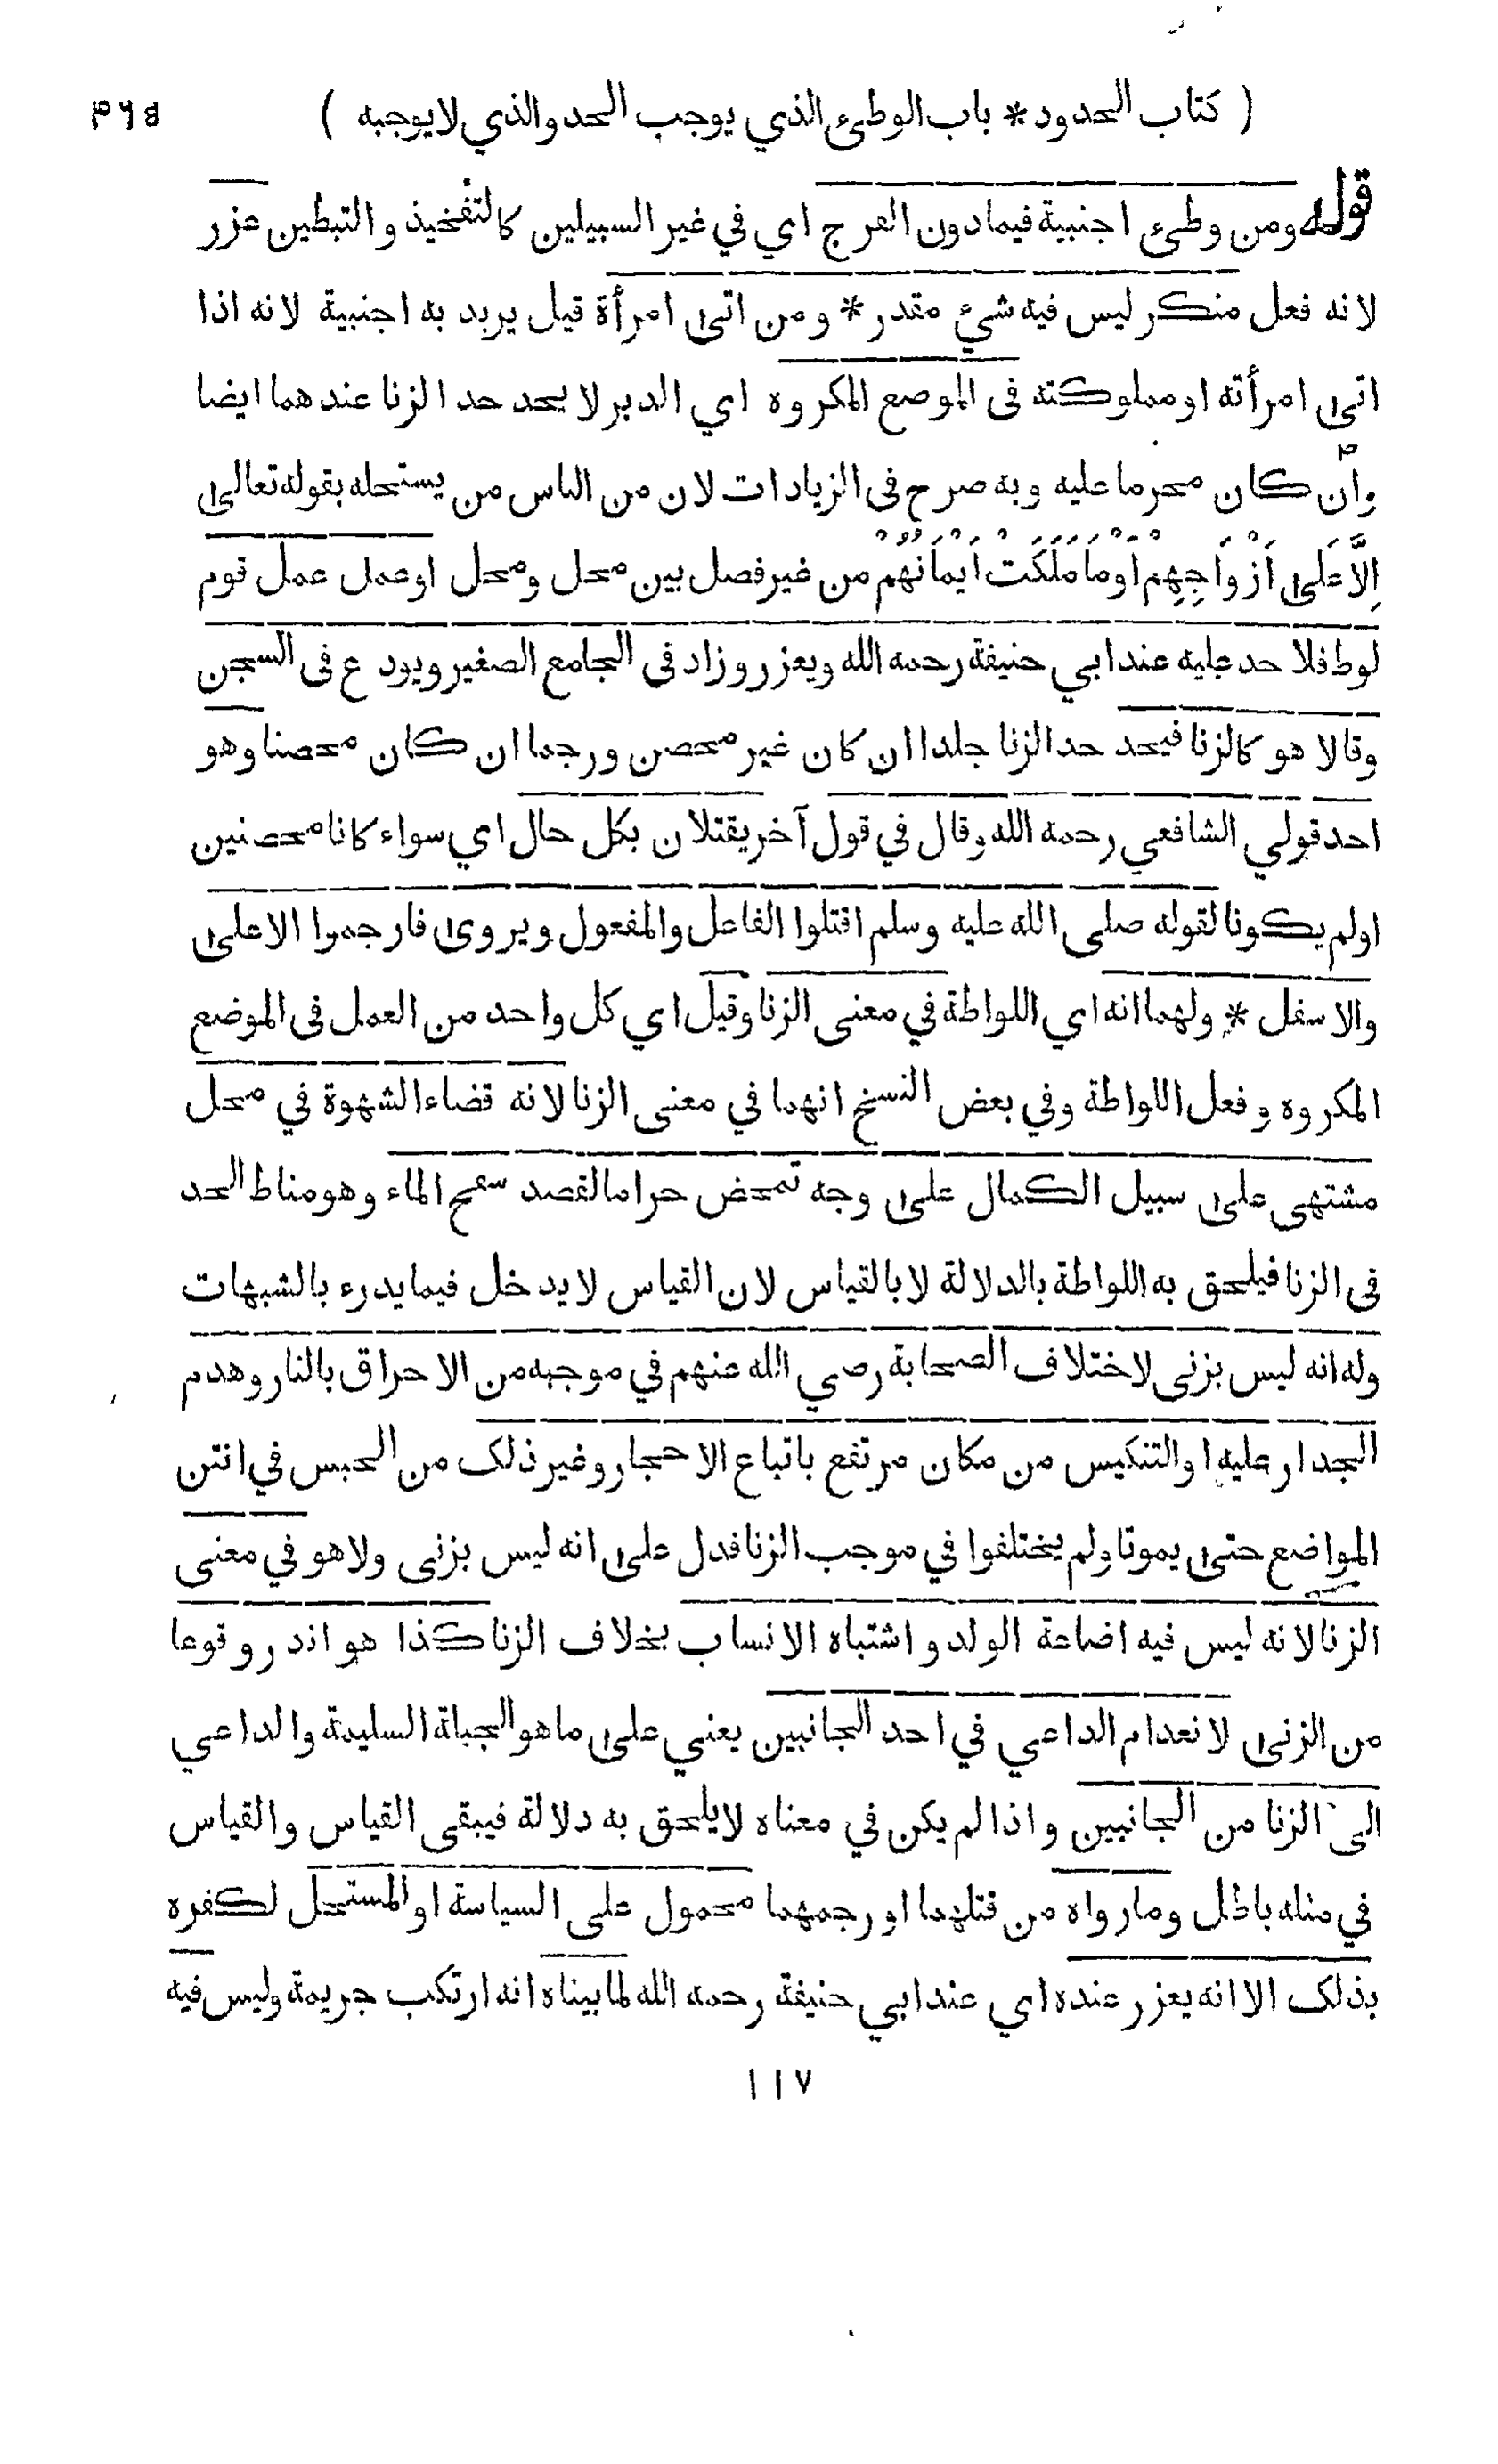 ( كتاب الحدود * باب الوطىء الذي يوجب الحد والذي لا يوجبه ) ۴۶۵
قوله ومن وطىء اجنبية فيما دون الفرج اي في غير السبيلين كالتفخيذ والتبطين عزر
لانه فعل منكر ليس فيه شيء مقدر * ومن اتى امرأة قيل يريد به اجنبية لانه اذا
اتى امرأته او مملوكته فى الموضع المكروه اي الدبر لا يحد حد الزنا عندهما ايضا
وان كان محرما عليه وبه صرح فى الزيادات لان من الناس من يستحله بقوله تعالى
اِلَّا عَلى اَزْوَاجِهِمْ اَوْ مَا مَلَكَتْ اَيْمَانُهُمْ من غير فصل بين محل ومحل او عمل عمل قوم
لوط فلا حد عليه عند ابي حنيفة رحمه الله ويعزر وزاد فى الجامع الصغير ويودع فى السجن
وقالا هو كالزنا فيحد حد الزنا جلدا ان كان غير محصن ورجما ان كان محصنا وهو
احد قولي الشافعي رحمه الله وقال في قول آخر يقتلان بكل حال اي سواء كانا محصنين
اولم يكونا لقوله صلى الله عليه وسلم اقتلوا الفاعل والمفعول ويروى فارجموا الاعلى
والاسفل * ولهما انه اي اللواطة في معنى الزنا وقيل اي كل واحد من العمل فى الموضع
المكروه وفعل اللواطة وفي بعض النسخ انهما في معنى الزنا لانه قضاء الشهوة في محل
مشتهى على سبيل الكمال على وجه تمحض حراما لقصد سفح الماء وهو مناط الحد
فى الزنا فيلحق به اللواطة بالدلالة لا بالقياس لان القياس لا يدخل فيما يدرء بالشبهات
وله انه ليس بزنى لاختلاف الصحابة رضي الله عنهم في موجبه من الاحراق بالنار وهدم
الجدار عليه او التنكيس من مكان مرتفع باتباع الاحجار وغير ذلك من الحبس في انتن
المواضع حتى يموتا ولم يختلفوا في موجب الزنا فدل على انه ليس بزنى ولا هو في معنى
الزنا لانه ليس فيه اضاعة الولد واشتباه الانساب بخلاف الزنا كذا هو اندر وقوعا
من الزنى لانعدام الداعي في احد الجانبين يعني على ما هو الجبلة السليمة والداعي
الى الزنا من الجانبين واذا لم يكن في معناه لا يلحق به دلالة فيبقى القياس والقياس
في مثله باطل وما رواه من قتلهما او رجمهما محمول على السياسة او المستحل لكفره
بذلك الا انه يعزر عنده اي عند ابي حنيفة رحمه الله لما بيناه انه ارتكب جريمة وليس فيه
١١٧